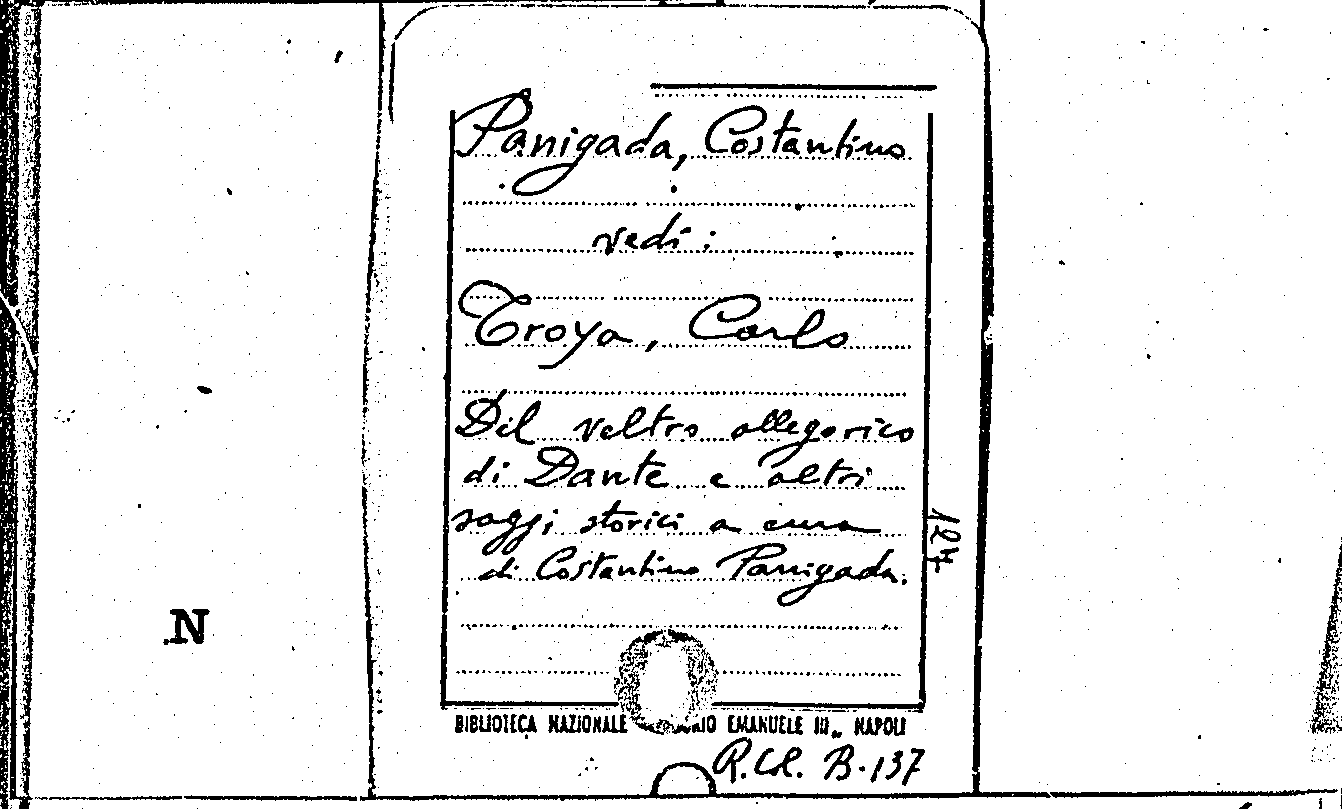 Panigada, Costantino
vedi:
Troya, Carlo
Del veltro allegorico
di Dante e altri
saggi storici a cura
di Costantino Panigada.
N
BIBLIOTECA NAZIONALE EMANUELE III„ NAPOLI
R.Col. B.137